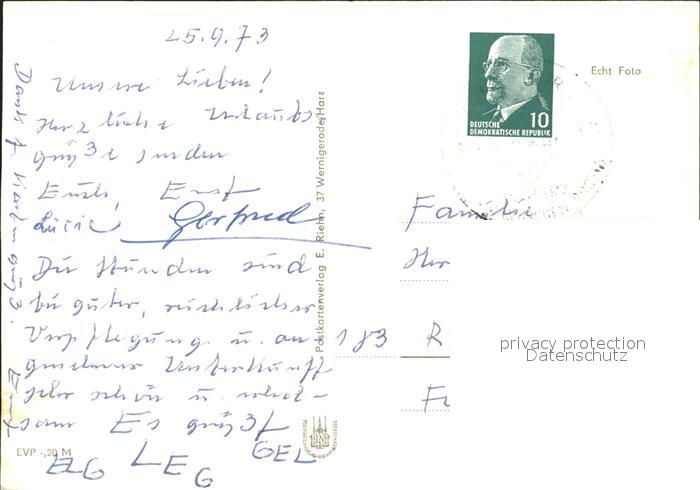 25.9.73
Unsere Lieben!
Herzliche Urlaubs
grüße senden
Euch, Ernst
Lucie, Gertrud
Die Stunden sind
bei guter, reichlicher
Verpflegung u. an
genehmer Unterkunft
sehr schön u. erhol-
sam Es grüßt
LEG
GEL
Dank f. Kartengruß.
Ernst
EVP -,20 M
Postkartenverlag E. Riehn, 37 Wernigerode/Harz
DEUTSCHE
DEMOKRATISCHE REPUBLIK
10
Echt Foto
Familie
183 R
privacy protection
Datenschutz